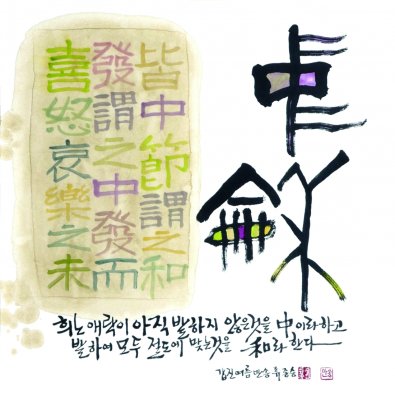 喜怒哀樂之未
發謂之中發而
皆中節謂之和
中
龢
희노애락이 아직 발하지 않은것을 中이라하고
발하여 모두 절도에 맞는것을 和라 한다
갑진여름